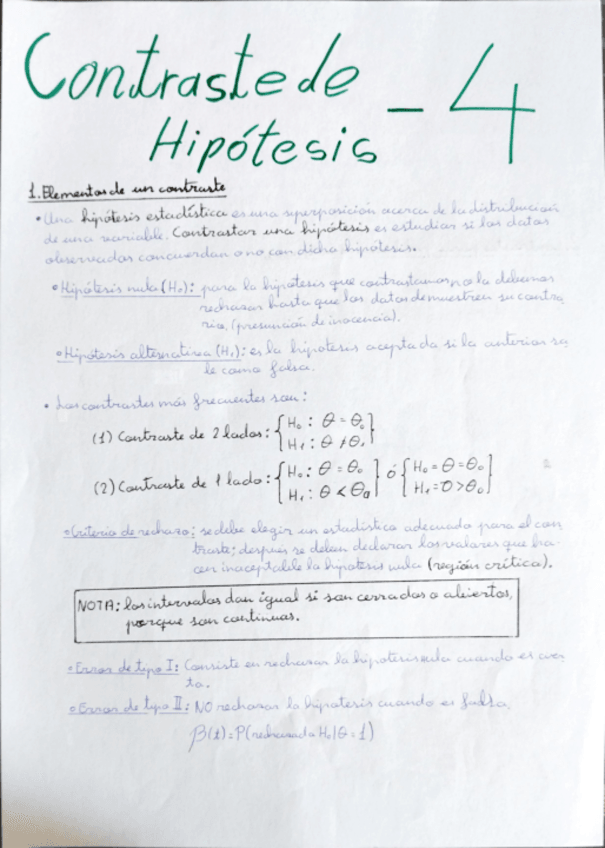 Contraste de - 4
Hipótesis
1. Elementos de un contraste
• Una hipótesis estadística es una superposición acerca de la distribución
de una variable. Contrastar una hipótesis es estudiar si los datos
observados concuerdan o no con dicha hipótesis.
• Hipótesis nula (H₀): para la hipótesis que contrastamos, no la debemos
rechazar hasta que los datos demuestren su contra-
rio, (presunción de inocencia).
• Hipótesis alternativa (H₁): es la hipótesis aceptada si la anterior sa-
le como falsa.
• Los contrastes más frecuentes son:
(1) Contraste de 2 lados: { H₀ : θ = θ₀
H₁ : θ ≠ θ₀ }
(2) Contraste de 1 lado: { H₀ : θ = θ₀ } ó { H₀ = θ = θ₀
H₁ : θ < θ₀ } { H₁ = θ > θ₀ }
• Criterio de rechazo: se debe elegir un estadístico adecuado para el con-
traste; después se deben declarar los valores que ha-
cen inaceptable la hipótesis nula (región crítica).
NOTA: los intervalos dan igual si son cerrados o abiertos,
porque son continuas.
• Error de tipo I: Consiste en rechazar la hipótesis nula cuando es cier-
ta.
• Error de tipo II: NO rechazar la hipótesis cuando es falsa.
β(t) = P(rechazada H₀ | θ = 1)